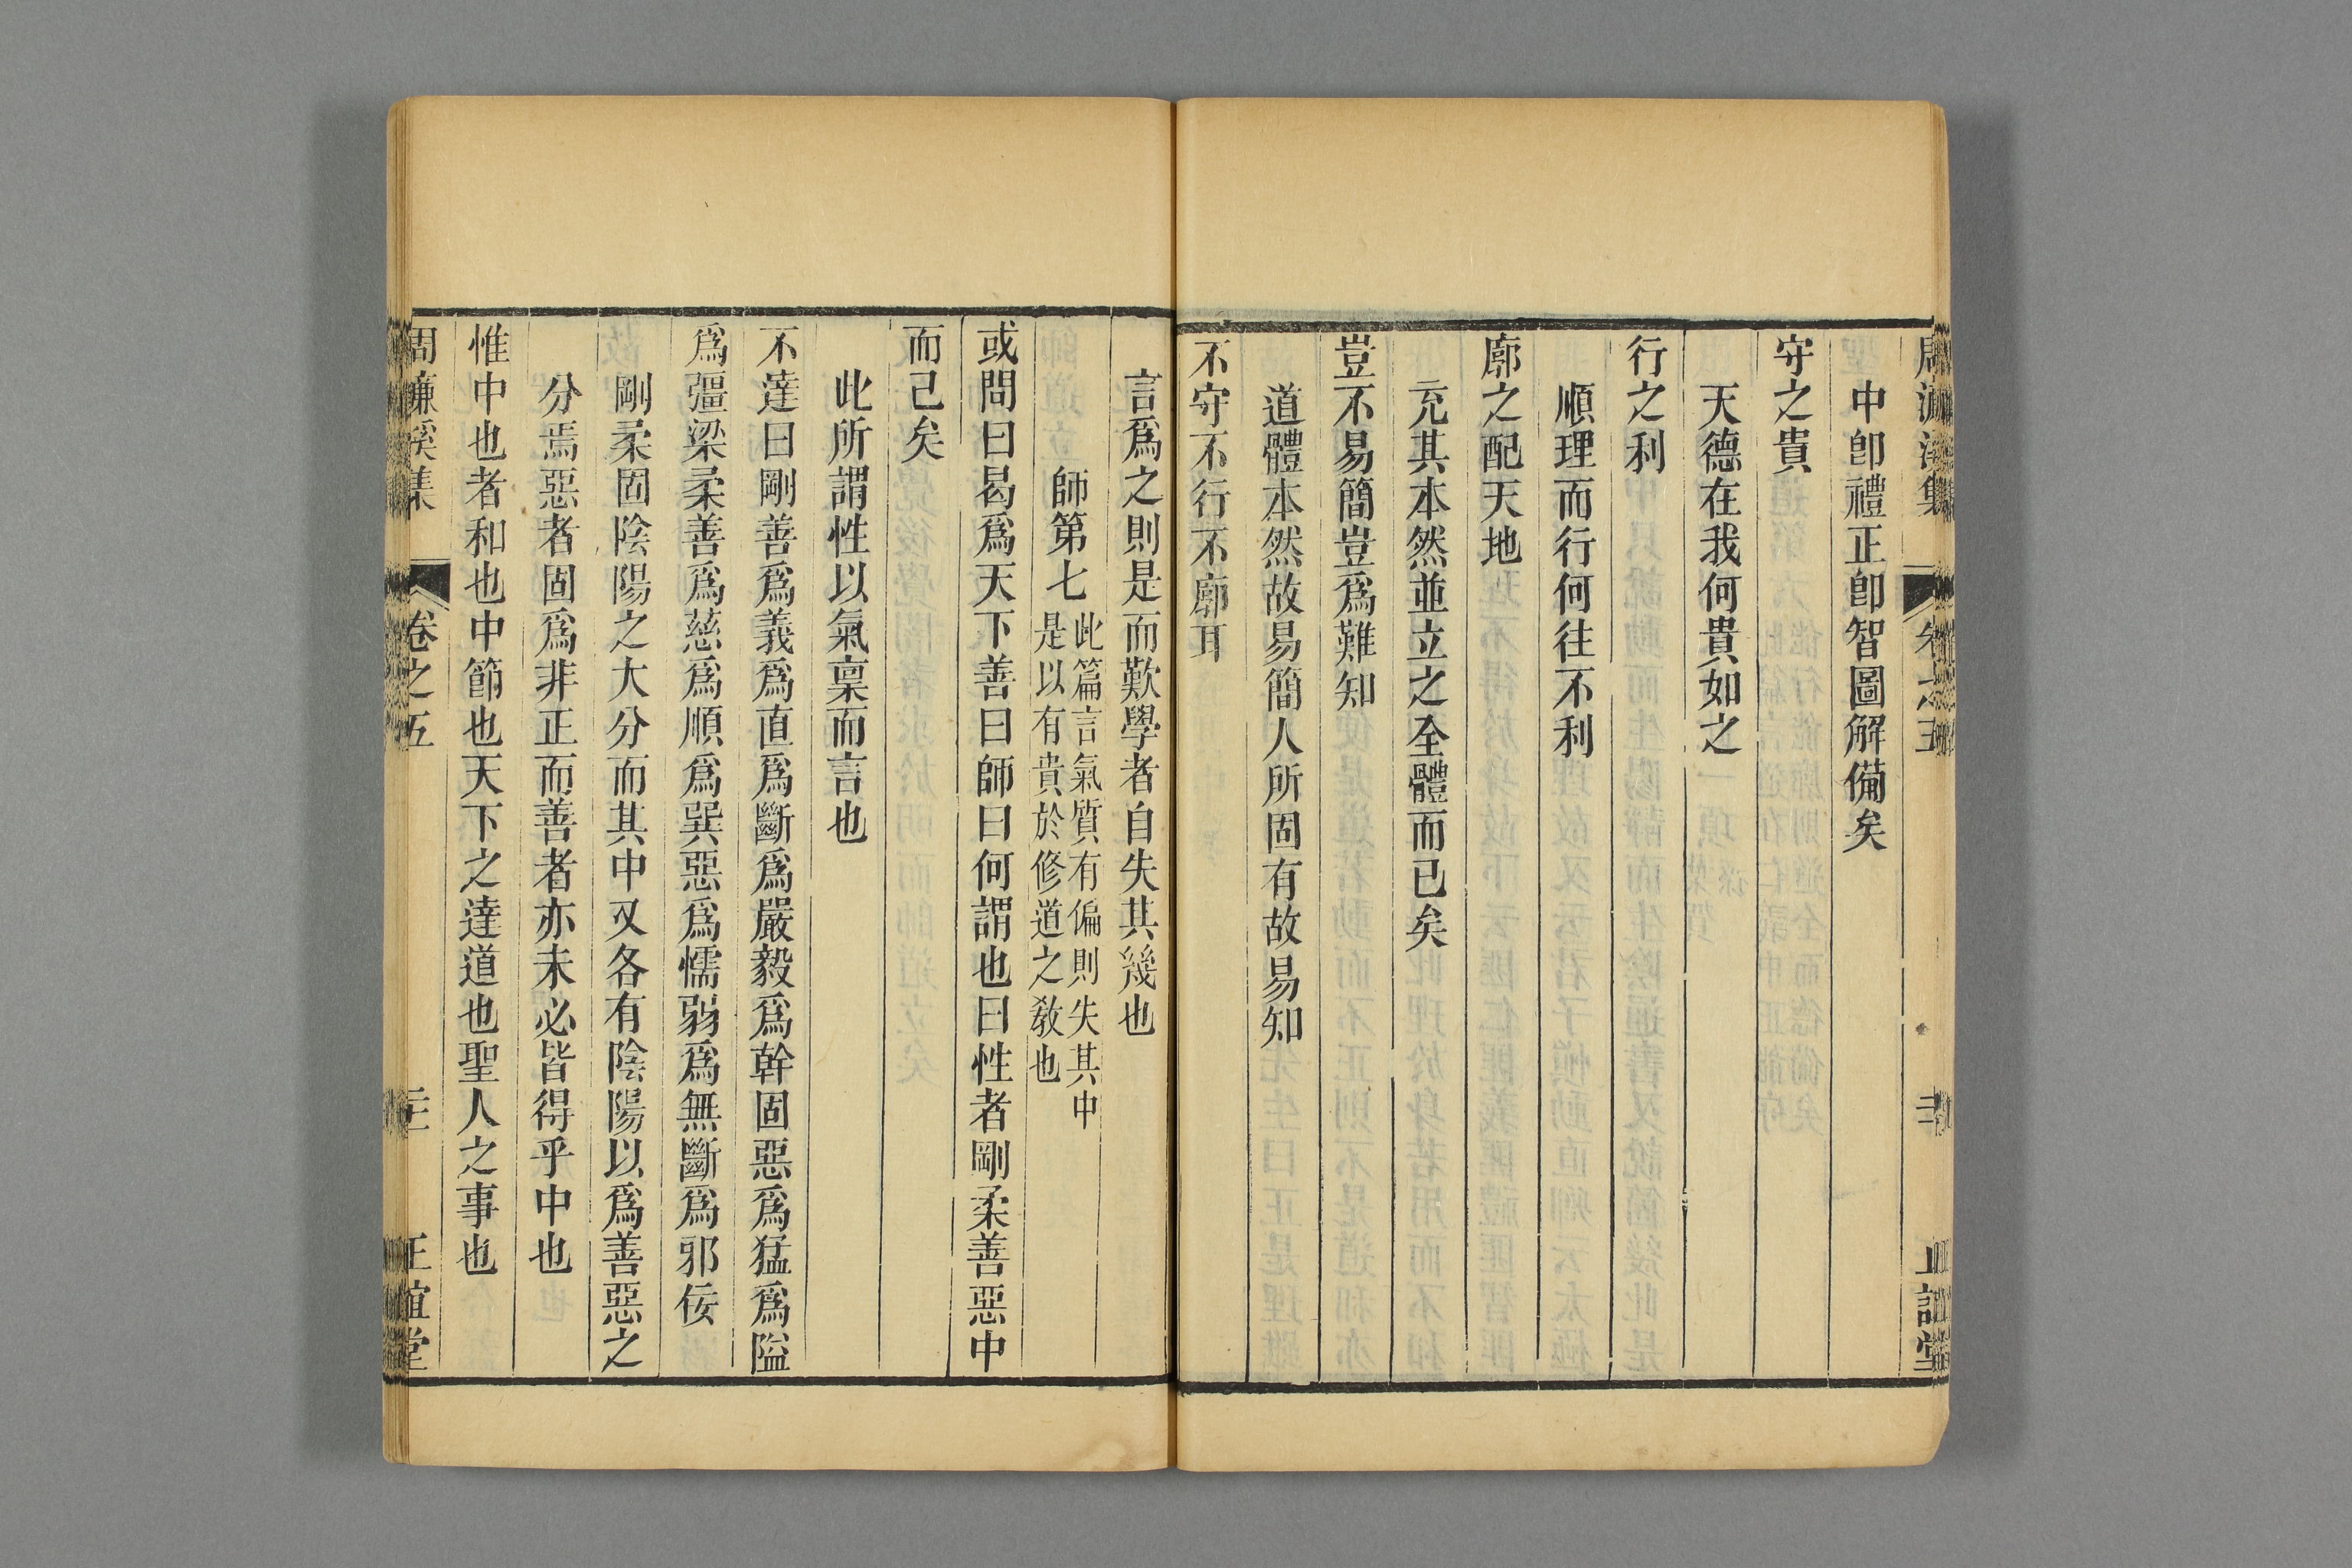 中卽禮正卽智圖解備矣
守之貴
天德在我何貴如之
行之利
順理而行何往不利
廓之配天地
充其本然並立之全體而已矣
豈不易簡豈爲難知
道體本然故易簡人所固有故易知
不守不行不廓耳
言爲之則是而歎學者自失其幾也
師第七
此篇言氣質有偏則失其中
是以有貴於修道之敎也
或問曰曷爲天下善曰師曰何謂也曰性者剛柔善惡中
而已矣
此所謂性以氣稟而言也
不達曰剛善爲義爲直爲斷爲嚴毅爲幹固惡爲猛爲隘
爲彊梁柔善爲慈爲順爲巽惡爲懦弱爲無斷爲邪佞
剛柔固陰陽之大分而其中又各有陰陽以爲善惡之
分焉惡者固爲非正而善者亦未必皆得乎中也
惟中也者和也中節也天下之達道也聖人之事也
周濂溪集 卷之五 正誼堂